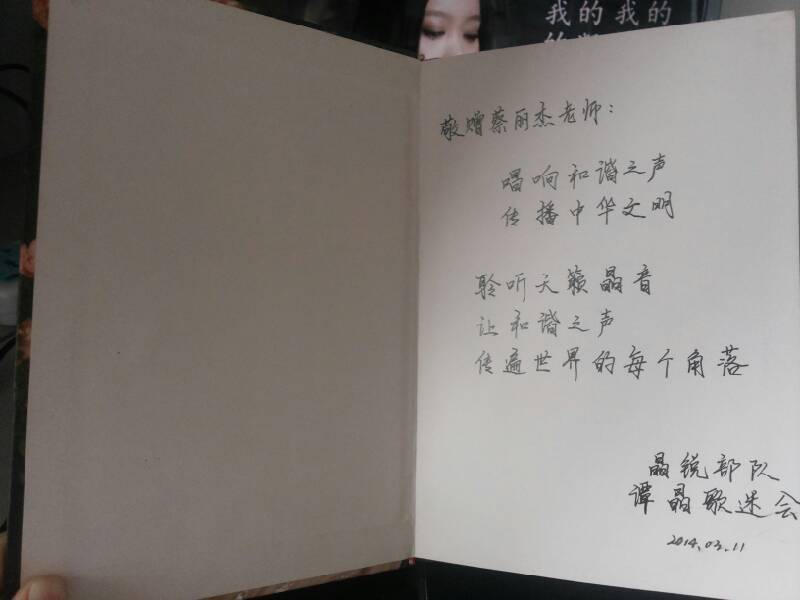 我的我的
敬赠蔡丽杰老师：
唱响和谐之声
传播中华文明
聆听天籁晶音
让和谐之声
传遍世界的每个角落
晶锐部队
谭晶歌迷会
2014.03.11